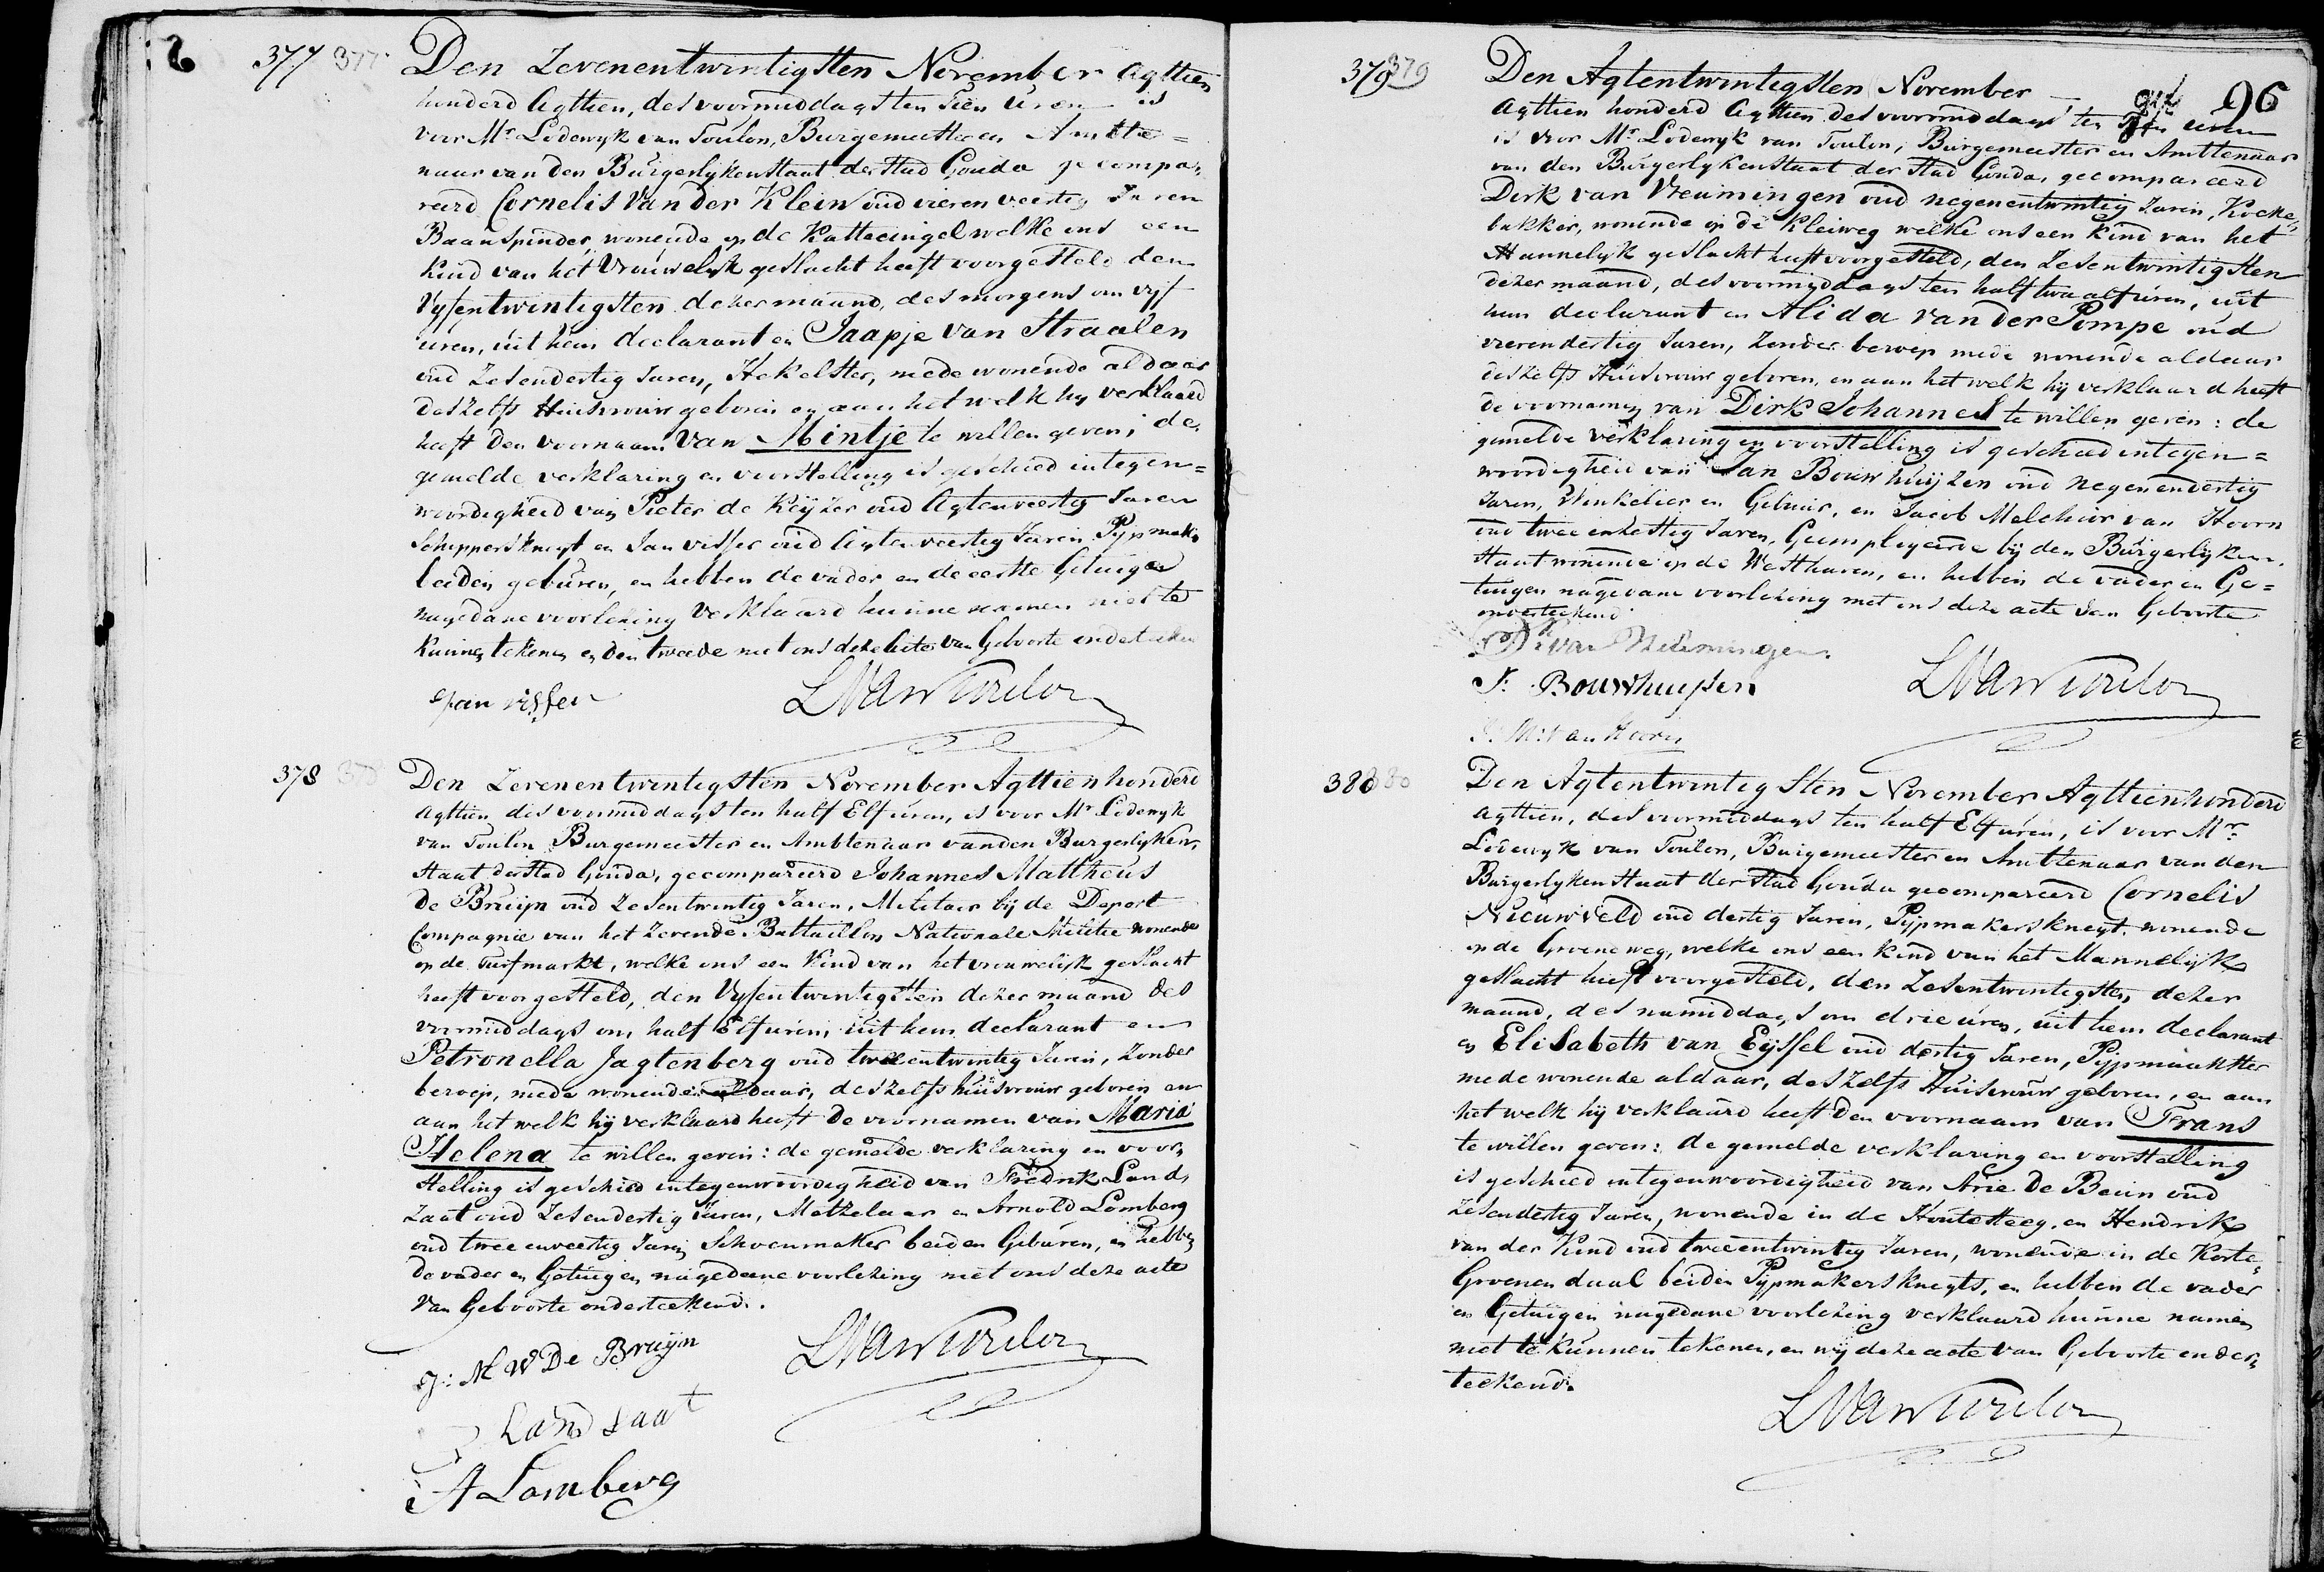 377 377
Den Zevenentwintigsten November Agttien
honderd Agttien, des voormiddags ten tien Uren is
voor Mr Lodewyk van Toulon, Burgemeester en Amtte=
naar van den Burgerlyken Staat der Stad Gouda gecompa,
reerd Cornelis van der Klein oud vieren veertig Jaren
Baanspinder, wonende op de Kattecingel welke ons een
kind van het Vrouwelyk geslacht heeft voorgesteld den
Vyfentwintigsten dezer maand, des morgens om vyf
uren, uit hem declarant en Jaapje van Straalen
oud Zesendertig Jaren, Hekelster, mede wonende aldaar
deszelfs Huisvrouw geboren en aan het welk hy verklaard
heeft den voornaam van Mintje te willen geven; de
gemelde verklaring en voorstelling is geschied in tegen=
woordigheid van Pieter de Keyzer oud Agtenveertig Jaren
Schippersknegt en Jan visser oud Agtenveertig Jaren Pypmak,
beiden geburen, en hebben de vader en de eerste Getuige
nagedane voorlezing verklaard hunne namen niet te
kunnen tekenen en den tweede met ons deze acte van Geboorte ondertekend
Jan visser
LVan Toulon
378 378
Den Zevenentwintigsten November Agttienhonderd
Agttien des voormiddags ten half Elf uren, is voor Mr Lodewyk
van Toulon Burgemeester en Ambtenaar van den Burgerlyken
Staat der Stad Gouda, gecompareerd Johannes Mattheus
De Bruijn oud Zesentwintig Jaren, Militair bij de Depot
Compagnie van het Zevende Battaillon Nationale Militie wonende
op de Turfmarkt, welke ons een Kind van het vrouwelijk geslacht
heeft voorgesteld, den Vyfentwintigsten dezer maand des
voormiddags om half Elf uren, uit hem declarant en
Petronella Jagtenberg oud tweeentwintig Jaren, Zonder
beroep, mede wonende aldaar, deszelfs huisvrouw geboren en
aan het welk hij verklaard heeft de voornamen van Maria
Helena te willen geven: de gemelde verklaring en voor,
stelling is geschied in tegenwoordigheid van Fredrik Land,
zaat oud Zesendertig Jaren, Metzelaar en Arnold Lomberg
oud tweeenveertig Jaren Schoenmaker beiden Geburen, en hebben
de vader en Getuigen nagedane voorlezing met ons deze acte
van Geboorte onderteekend.
J: M De Bruijn
LVan Toulon
Landsaat
A Lomberg
96
379 379
Den Agtentwintigsten November
Agttien honderd Agttien des voormiddags ten uren
is voor Mr Lodewyk van Toulon, Burgemeester en Amttenaar
van den Burgerlyken Staat der Stad Gouda, gecompareerd
Dirk van Vreumingen oud negenentwintig Jaren, Koeke,
bakker, wonende op de Kleiweg welke ons een Kind van het
Mannelijk geslacht heeft voorgesteld, den Zesentwintigsten
dezer maand, des voormiddags ten half twaalf uren, uit
hem declarant en Alida van der Pompe oud
vierendertig Jaren, Zonder beroep mede wonende aldaar
deszelfs Huisvrouw geboren, en aan het welk hij verklaard heeft
de voornamen van Dirk Johannes te willen geven: de
gemelde verklaring en voorstelling is geschied in tegen=
woordigheid van Jan Bouwhuijzen oud negenendertig
Jaren, Winkelier en Gebuur, en Jacob Melchior van Hoorn
oud twee enzestig Jaren, Geemployeerde bij den Burgerlijken
Staat wonende op de Westhaven, en hebben de vader en Ge=
tuigen nagedane voorlezing met ons deze acte van Geboorte
onderteekend
Dk van Vreumingen.
J: Bouwhuijsen
LVan Toulon
J: M: van Hoorn
380 380
Den Agtentwintigsten November Agttienhonderd
Agttien, des voormiddags ten half Elf uren, is voor Mr
Lodewyk van Toulon, Burgemeester en Ambtenaar van den
Burgerlyken Staat der Stad Gouda gecompareerd Cornelis
Nieuwveld oud dertig Jaren, Pypmakersknegt wonende
op de Groeneweg, welke ons een kind van het Mannelijk
geslacht heeft voorgesteld, den Zesentwintigsten dezer
maand, des namiddags om drie uren, uit hem declarant
en Elisabeth van Eijssel oud dertig Jaren, Pijpmaakster
mede wonende aldaar, deszelfs Huisvrouw geboren, en aan
het welk hij verklaard heeft den voornaam van Frans
te willen geven: de gemelde verklaring en voorstelling
is geschied in tegenwoordigheid van Arie De Bruin oud
Zesendertig Jaren, wonende in de Houtesteeg, en Hendrik
van der Kind oud tweeentwintig Jaren, wonende in de Korte,
Groenendaal beiden Pypmakersknegts, en hebben de vader
en Getuigen nagedane voorlezing verklaard hunne namen
niet te kunnen tekenen, en wij deze acte van Geboorte onder,
teekend.
LVan Toulon